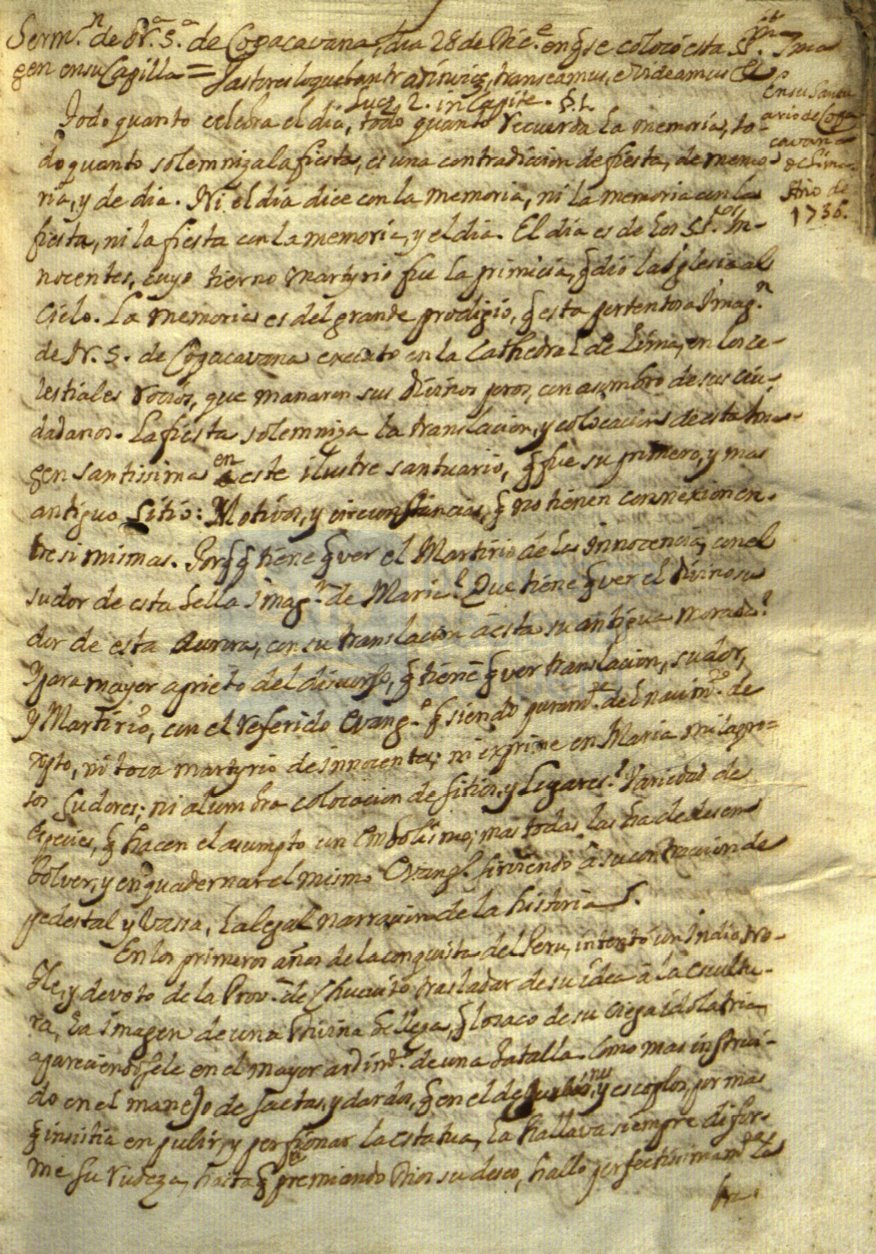 Serm.n de Nr.a S.a de Copacavana, dia 28 de Dic.e en q̃ se colocó esta S.ma Ima
gen en su Capilla = Pastores loquebantur ad invicẽ, transeamus, et videamus &
Luc. 2. in Capite. S. L.
en su Santu
ario de Copa
cavana
de Lima
Año de
1736.
Todo quanto celebra el dia, todo quanto recuerda la memoria, to-
do quanto solemniza la fiesta, es una contradicion de fiesta, de memo
ria, y de dia. Ni el dia dice con la memoria, ni la memoria con la
fiesta, ni la fiesta con la memoria, y el dia. El dia es de los S.tos In-
nocentes, cuyo tierno martyrio fue la primicia, q̃ dió la Iglesia al
Cielo. La memoria es del grande prodigio, q̃ esta portentosa Imag.n
de N. S. de Copacavana executó en la Cathedral de Lima, en los ce-
lestiales rocios, que manaron sus divinos poros, con asombro de sus ciu-
dadanos. La fiesta solemniza la translacion, y colocacion de esta Ima-
gen santissima en este ilustre santuario, q̃ fue su primero, y mas
antiguo sitio: Motivos, y circunstancias, q̃ no tienen connexion en-
tre si mismas. Porq̃ q̃ tiene q̃ ver el Martirio de la Innocencia, con el
sudor de esta bella Imag.n de Maria? Que tiene q̃ ver el divino su
dor de esta Aurora, con su translacion á esta su antigua morada?
Y para mayor aprieto del discurso, q̃ tiene q̃ ver translacion, sudor,
y Martirio, con el referido Evang.o q̃ siendo puram.te del nacim.to de
Xpto, ni toca martyrio de innocentes; ni exprime en Maria milagro-
sos sudores; ni alumbra colocacion de sitios, y lugares? Variedad de
especies, q̃ hacen el asumpto un embolismo; mas todas las ha de desem
bolver, y enquadernar el mismo Evang.o sirviendo á su contraccion de
pedestal y vassa, la legal narracion de la historia.
En los primeros años de la conquista del Peru, intentó un Indio no-
ble, y devoto de la Prov.a de Chucuito trasladar de su idea á la escultu-
ra, la imagen de una divina belleza, q̃ lo sacó de su ciega idolatria,
apareciendosele en el mayor ardim.to de una batalla. Como mas instrui-
do en el manejo de saetas, y dardos, q̃ en el de buriles, y escoplos, por mas
q̃ insistia en pulir, y perficionar la estatua, la hallava siempre difor-
me su rudeza, hasta q̃ premiando Dios su deseo, halló perfectissimam.te la